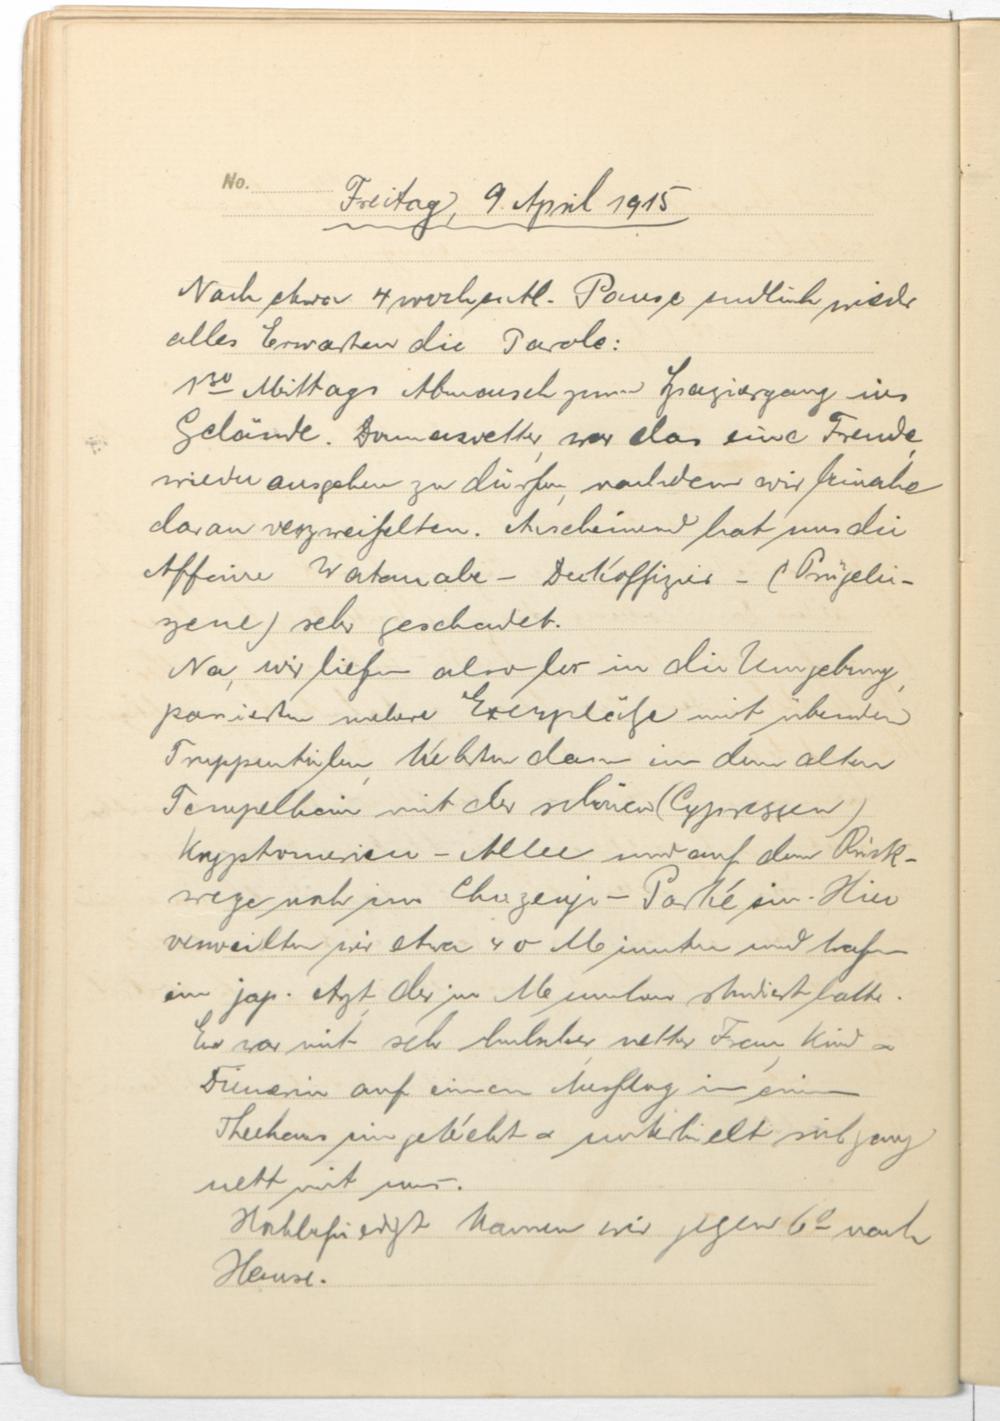 No.
Freitag, 9 April 1915
Nach etwa 4 wochentl. Pause endlich wieder
alles Erwarten die Parole:
1³⁰ Mittags Abmarsch zum Spaziergang ins
Gelände. Donnerwetter, war das eine Freude,
wieder ausgehen zu dürfen, nachdem wir beinahe
daran verzweifelten. Anscheinend hat uns die
Affaire Watanabe - Deckoffizier - (Prügelei-
szene) sehr geschadet.
Na, wir liefen also los in die Umgebung,
passierten mehere Exerzplätze mit übenden
Truppenteilen, kehrten dann in dem alten
Tempelhain mit der schönen (Cypressen)
Kryptomerien - Allee und auf dem Rück-
wege noch im Chozenji - Park ein. Hier
verweilten wir etwa 40 Minuten und trafen
ein jap. Arzt, der in München studiert hatte.
Er war mit sehr hübscher, netter Frau, Kind &
Dienerin auf einem Ausflug in ein
Theehaus eingekehrt & unterhielt sich ganz
nett mit uns.
Hochbefriedigt kamen wir gegen 6⁰ nach
Hause.